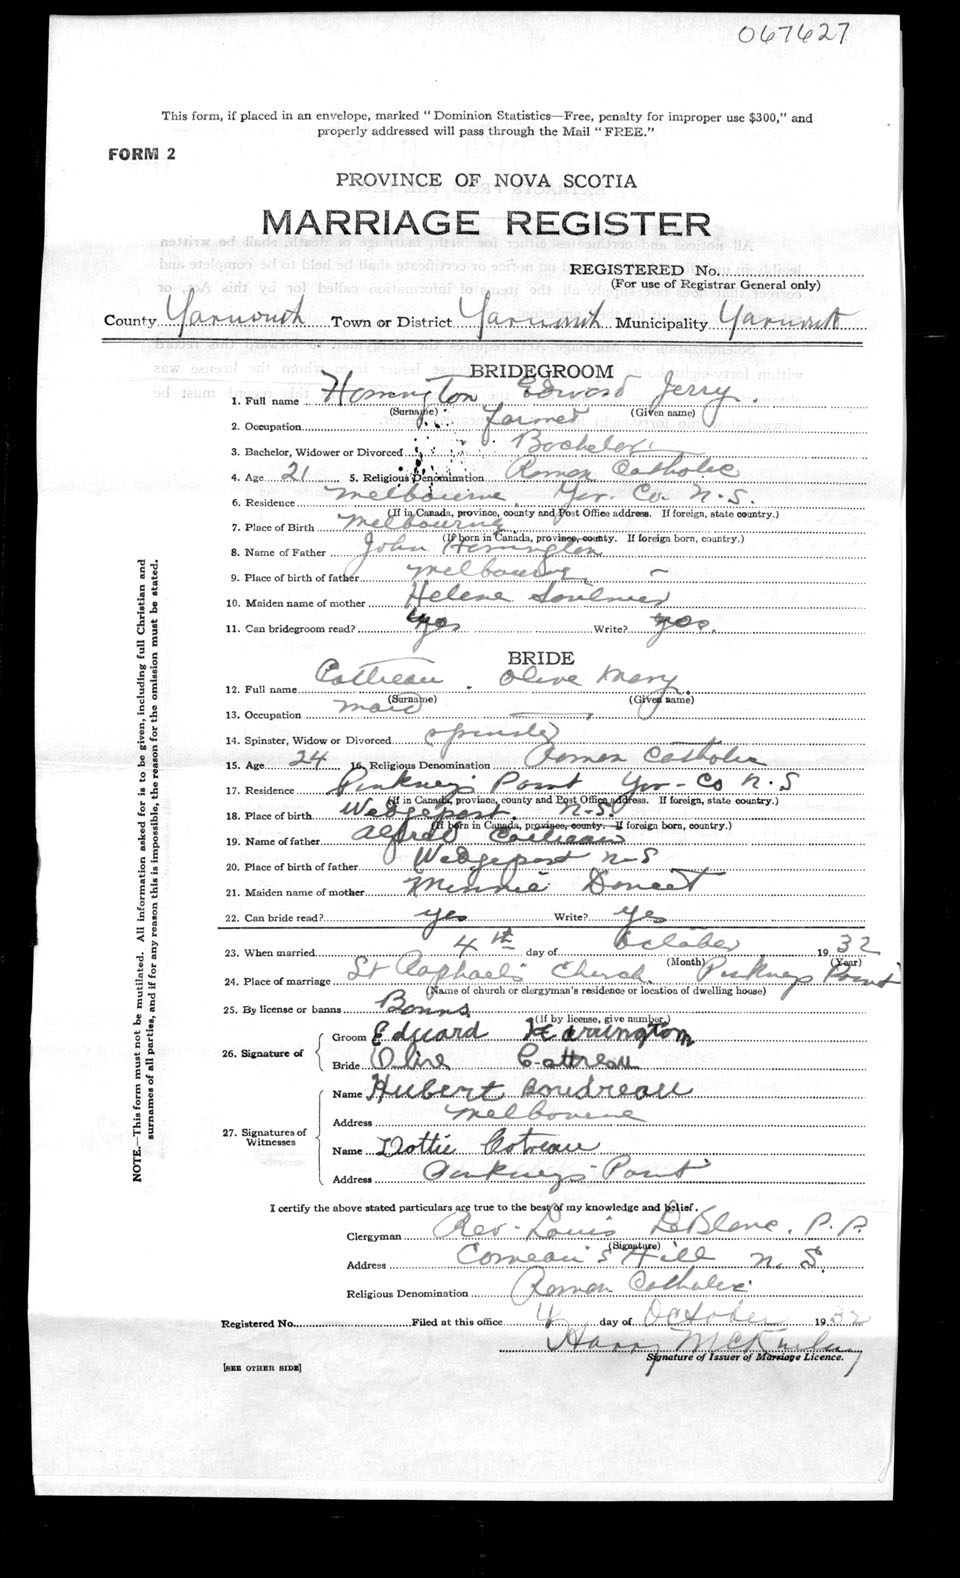 067627
This form, if placed in an envelope, marked "Dominion Statistics—Free, penalty for improper use $300," and
properly addressed will pass through the Mail "FREE."
FORM 2
PROVINCE OF NOVA SCOTIA
MARRIAGE REGISTER
REGISTERED No.
(For use of Registrar General only)
County Yarmouth Town or District Yarmouth Municipality Yarmouth
BRIDEGROOM
1. Full name Harrington Edward Jerry
(Surname) (Given name)
2. Occupation farmer
3. Bachelor, Widower or Divorced Bachelor
4. Age 21 5. Religious Denomination Roman Catholic
6. Residence Melbourne Yar. Co. N.S.
(If in Canada, province, county and Post Office address. If foreign, state country.)
7. Place of Birth Melbourne
(If born in Canada, province, county. If foreign born, country.)
8. Name of Father John Harrington
9. Place of birth of father Melbourne
10. Maiden name of mother Helene
11. Can bridegroom read? yes Write? yes.
BRIDE
12. Full name Cottreau Olive Mary
(Surname) (Given name)
13. Occupation maid
14. Spinster, Widow or Divorced Spinster
15. Age 24 16. Religious Denomination Roman Catholic
17. Residence Pinkney's Point Yar-Co N.S
(If in Canada, province, county and Post Office address. If foreign, state country.)
18. Place of birth Wedgeport N.S.
(If born in Canada, province, county. If foreign born, country.)
19. Name of father Alfred Cottreau
20. Place of birth of father Wedgeport N-S
21. Maiden name of mother Minnie Doucet
22. Can bride read? yes Write? yes
23. When married 4th day of October 1932
(Month) (Year)
24. Place of marriage St Raphael's Church Pinkneys Point
(Name of church or clergyman's residence or location of dwelling house)
25. By license or banns Banns
(If by license, give number.)
26. Signature of
Groom Edward Harrington
Bride Olive Cottreau
27. Signatures of Witnesses
Name Hubert Boudreau
Address Melbourne
Name Dottie Cotreau
Address Pinkneys Point
I certify the above stated particulars are true to the best of my knowledge and belief.
Clergyman Rev. Louis LeBlanc. P.P.
(Signature)
Address Comeau's Hill N.S.
Religious Denomination Roman Catholic
Registered No. Filed at this office 4 day of October 1932
Harry McKinley
Signature of Issuer of Marriage Licence.
[SEE OTHER SIDE]
NOTE.—This form must not be mutilated. All information asked for is to be given, including full Christian and
surnames of all parties, and if for any reason this is impossible, the reason for the omission must be stated.